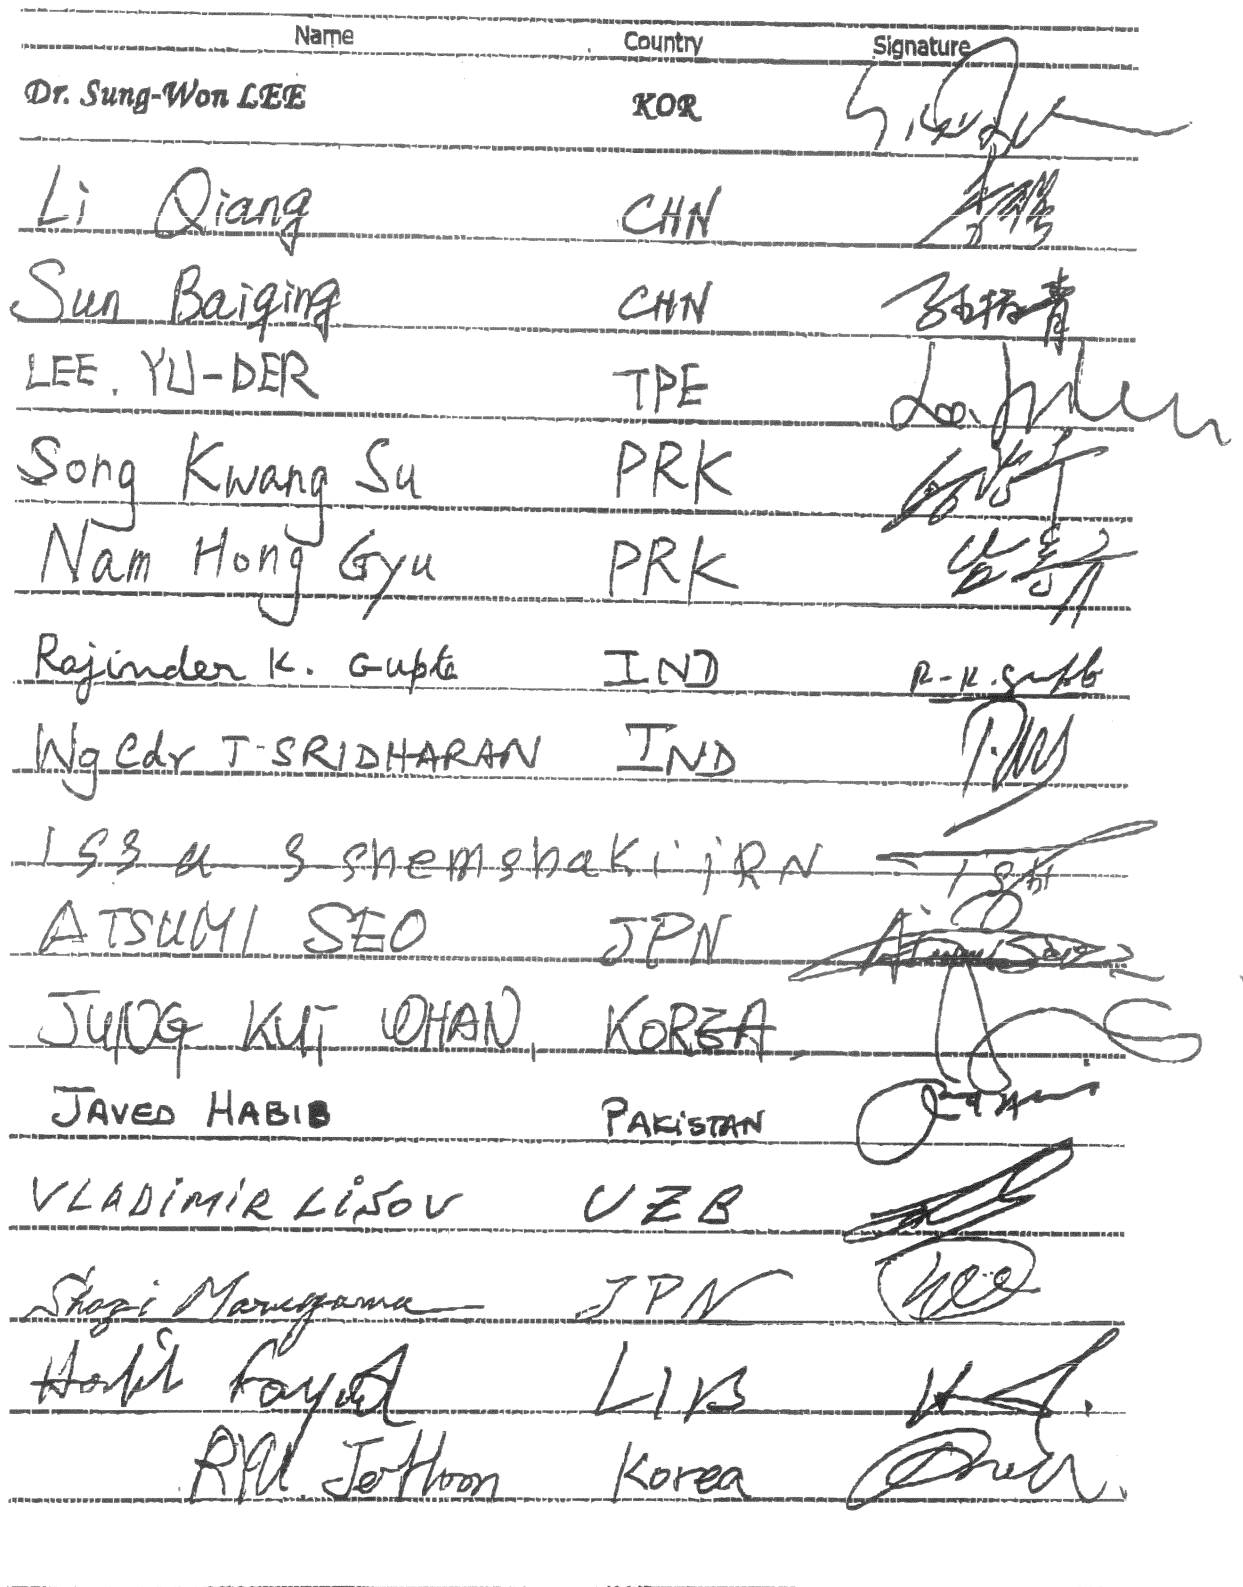 Name Country Signature
Dr. Sung-Won LEE KOR
Li Qiang CHN
Sun Baiqing CHN 孙柏青
LEE. YU-DER TPE
Song Kwang Su PRK
Nam Hong Gyu PRK
Rajinder K. Gupta IND R.K.Gupta
Wg Cdr T-SRIDHARAN IND
Issa s shemshaki iRN
ATSUMI SEO JPN Atsumi Seo
JUNG KUI WHAN, KOREA
JAVED HABIB PAKiSTAN
VLADiMiR LiSOV UZB
Shozi Maruyama JPN
Habib Fayad LIB
RYU. Je Hoon Korea